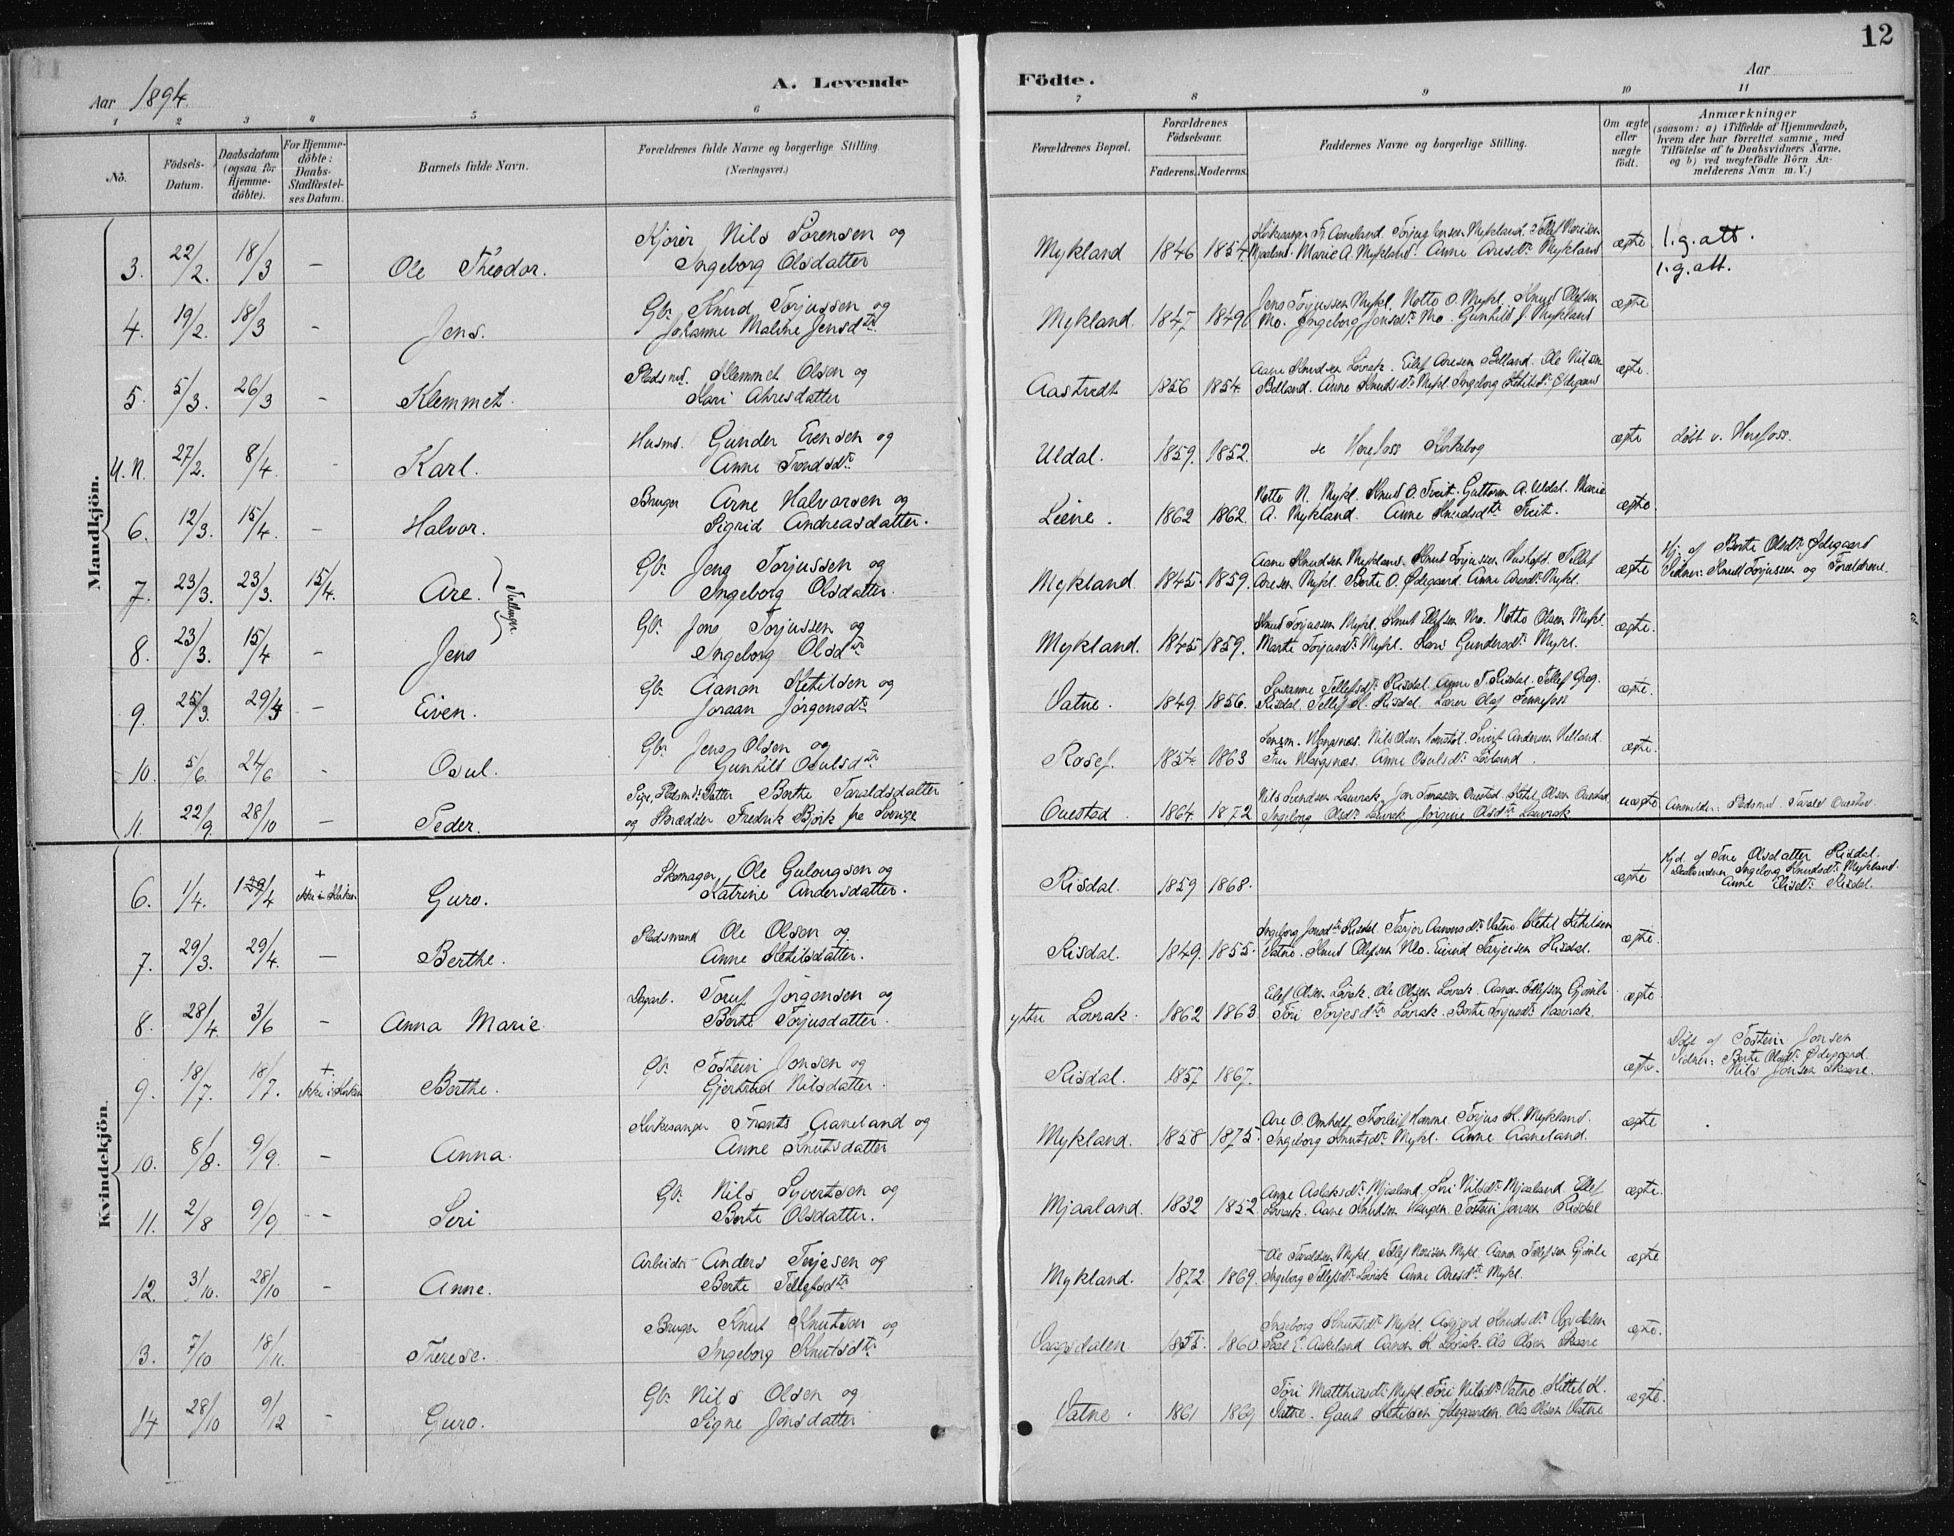 12
Aar 1894.
A. Levende
Födte.
Aar
1 2 3 4 5 6 7 8 9 10 11
No.
Födsels-Datum.
Daabsdatum (ogsaa for Hjemme-döbte).
For Hjemme-döbte: Daabs-Stadfæstel-ses Datum.
Barnets fulde Navn.
Forældrenes fulde Navne og borgerlige Stilling. (Næringsvei.)
Forældrenes Bopæl.
Forældrenes Födselsaar.
Faderens. Moderens.
Faddernes Navne og borgerlige Stilling.
Om ægte eller uægte födt.
Anmærkninger
(saasom: a) i Tilfælde af Hjemmedaab,
hvem der har forrettet samme, med
Tilföielse af to Daabsvidners Navne,
og b) ved uegtefödte Börn An-
melderens Navn m. V.)
Mandkjön.
3. 22/2. 18/3 – Ole Theodor. Kjörer Nils Sörensen og Ingeborg Olsdatter Mykland 1846 1854 ægte 1. g. att.
1. g. att.
4. 19/2. 18/3 – Jens. Gbr. Knud Torjussen og Johanne Maline Jensdtr Mykland. 1847 1849 Jens Torjussen Mykl. Notto O. Mykl. Knud Olefsen Mo. Ingeborg Jensdtr Mo. Gunhild J. Mykland ægte
5. 5/3. 26/3 – Klemmet. Pladsmd. Klemmet Olsen og Kari Ahresdatter 1856 1854. Aane Knudsen Lövrak. Eilef Aresen Belland. Ole Nilsen Belland. Anne Knudsdtr Mykl. Ingeborg Ketilsdtr Ödegaard ægte.
U. N. 27/2. 8/4. – Karl. Husmd. Gunder Evensen og Anne Trondsdtr. Uldal. 1859. 1852. se Herefoss Kirkebog ægte döbt v. Herefoss.
6. 12/3. 15/4. – Halvor. Bruger Arne Halvorsen og Sigrid Andreasdatter. Liene. 1862 1862. Notto N. Mykl. Knud O. Tveit. Guttorm A. Uldal. Marie A. Mykland. Anne Knudsdtr Tveit. ægte.
7. 23/3. 23/3. 15/4. Are. Tvillinger Gbr. Jens Torjussen og Ingeborg Olsdatter. Mykland. 1845 1859. Aane Knudsen Mykland. Knut Torjussen Hushofd. Tellef Aresen Mykl. Berte O. Ödegaard. Anne Aresdtr Mykl. ægte Hj. af Berte Olsdtr Ödegaard
Vidner: Knud Torjussen og Forældrene.
8. 23/3. 15/4 – Jens Gbr. Jens Torjussen og Ingeborg Olsdtr Mykland. 1845 1859. Knud Torjussen Mykl. Knut Ellefsen Mo. Notto Olsen Mykl. Marte Torjusdtr Mykl. Kari Gundersdtr Mykl. ægte.
9. 25/3. 29/4 – Eiven. Gbr. Aanon Ketilsen og Joraan Jörgensdtr Vatne. 1849 1856. Susanne Tellefsdtr Risdal. Anne T. Risdal. Tellef Greg. Risdal. Tellef H. Risdal. Lærer Olaf Fennefoss ægte.
10. 5/6. 24/6 – Osul. Gbr. Jens Olsen og Gunhild Osulsdtr Rosef. 1854 1863 ægte.
11. 22/9. 28/10 – Peder. Pige, Pladsmds Datter Berthe Taraldsdatter og Skrædder Fredrik Björk fra Sverige Ouestad. 1864. 1872 Nils Evendsen Laurak. Jon Ouestad. Ketil Olsen Ouestad. Ingeborg Olsdtr Laurak. Jörgine Olsdtr Laurak uægte Anmelder: Pladsmd Tarald Ouestad
Kvindekjön.
6. 1/4. 29/4 + ikke i Kirken Guro. Skomager Ole Gulovgsen og Katrine Andersdatter. Risdal. 1859 1868. ægte Hjd. af Töre Olsdatter Risdal.
Ingeborg Knudsdtr Mykland.
Anne Risdal.
7. 29/3. 29/4. – Berthe. Pladsmand Ole Olsen og Anne Ketilsdatter. Risdal. 1849. 1855. Ingeborg Jonsdtr Risdal. Tarjer Aanonsdtr Vatne. Ketil Ketilsen Vatne. Knud Olefsen Mo. Eivind Tarjeisen Risdal. ægte.
8. 28/4 3/6 – Anna Marie. Dagarb. Toruf Jörgensen og Berte Torjusdatter. ytre Lovrak. 1862 1863 Eilef Olsen Lovrak. Ole Olsen Lovrak. Aanon Tellefsen Gjömle Töri Torjesdtr Lovrak. Berte Torjusdtr ægte
9. 18/7. 18/7. + ikke i Kirken Berthe. Gbr. Tostein Jonsen og Gjertrud Nilsdatter. Risdal. 1857 1867. ægte. Döbt af Tostein Jonsen
Vidner: Berte Olsdtr Ödegaard.
Nils Jonsen Skaare
10. 8/8. 9/9. – Anna. Kirkesanger Frants Aaneland og Anne Knutsdatter Mykland. 1858 1875. Are O. Omholt. Thorleif Hamme. Torjus K. Mykland. Ingeborg Knutsdtr Mykl. Anne Aaneland. ægte
11. 2/8 9/9 – Siri Gbr. Nils Syvertsen og Berte Olsdatter. Mjaaland. 1832 1852 Anne Aslaksdtr Mjaaland. Siri Nilsdtr Mjaaland. Ellef Lovrak. Aane Knudsen Haugen. Tostein Jonsen Risdal ægte.
12. 3/10. 28/10 – Anne. Arbeider Anders Terjesen og Berte Tellefsdtr Mykland. 1872 1869. Ole Taraldsen Mykl. Tellef Nerisen Mykl. Aanon Tellefsen Gjömle Ingeborg Tellefsdtr Lovrak Anne Aresdtr Mykl. ægte
3. 7/10 18/11. – Therese. Bruger Knut Knutsen og Ingeborg Knutsdtr Vaagsdalen 1855. 1860. Ingeborg Knutsdtr Mykl. Asgjerd Knudsdtr Vaagsdalen E. Askeland Aanon K. Lövrak. Ole Olsen Skaare ægte.
14 28/10 9/12 – Guro. Gbr. Nils Olsen og Signe Jonsdatter Vatne. 1861 1869 Töri Matthiasdtr Mykl. Töri Nilsdtr Vatne. Kittel K. Vatne. Gaut Ketilsen Ödegaarden. Ole Olsen Vatne ægte.